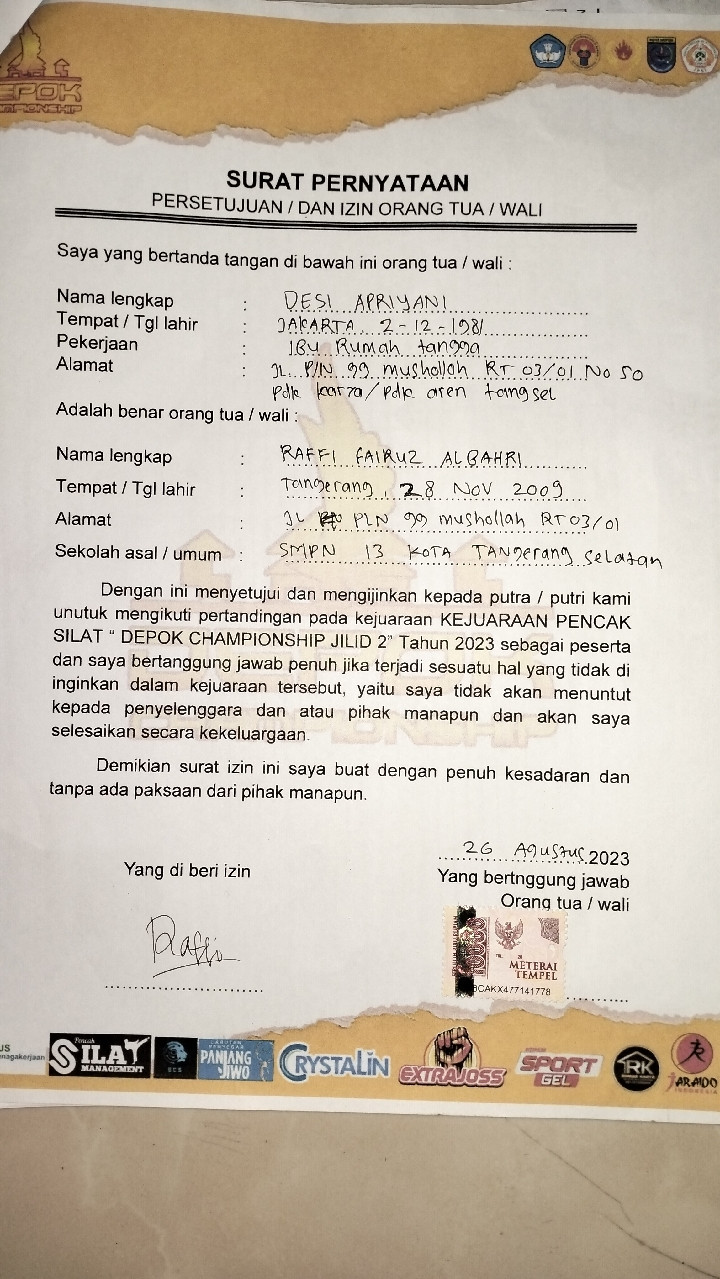 DEPOK
CHAMPIONSHIP
SURAT PERNYATAAN
PERSETUJUAN / DAN IZIN ORANG TUA / WALI
Saya yang bertanda tangan di bawah ini orang tua / wali :
Nama lengkap : DESI APRIYANI
Tempat / Tgl lahir : JAKARTA 2-12-1981
Pekerjaan : IBU Rumah tangga
Alamat : JL. PLN gg mushollah RT 03/01 No 50
pdk karya/pdk aren tangsel
Adalah benar orang tua / wali :
Nama lengkap : RAFFI FAIRUZ ALBAHRI
Tempat / Tgl lahir : Tangerang, 28 NOV 2009
Alamat : JL PLN gg mushollah RT 03/01
Sekolah asal / umum : SMPN 13 KOTA TANgerang selatan
Dengan ini menyetujui dan mengijinkan kepada putra / putri kami
unutuk mengikuti pertandingan pada kejuaraan KEJUARAAN PENCAK
SILAT “ DEPOK CHAMPIONSHIP JILID 2” Tahun 2023 sebagai peserta
dan saya bertanggung jawab penuh jika terjadi sesuatu hal yang tidak di
inginkan dalam kejuaraan tersebut, yaitu saya tidak akan menuntut
kepada penyelenggara dan atau pihak manapun dan akan saya
selesaikan secara kekeluargaan.
Demikian surat izin ini saya buat dengan penuh kesadaran dan
tanpa ada paksaan dari pihak manapun.
26 AgUSTUS 2023
Yang di beri izin
Yang bertnggung jawab
Orang tua / wali
Raffi
10000
METERAI
TEMPEL
CAKX477141778
Pencak
SILAT
MANAGEMENT
PANJANG
JIWO
CRYSTALIN
EXTRAJOSS
SPORT
GEL
RK
JARAIDO
INDONESIA